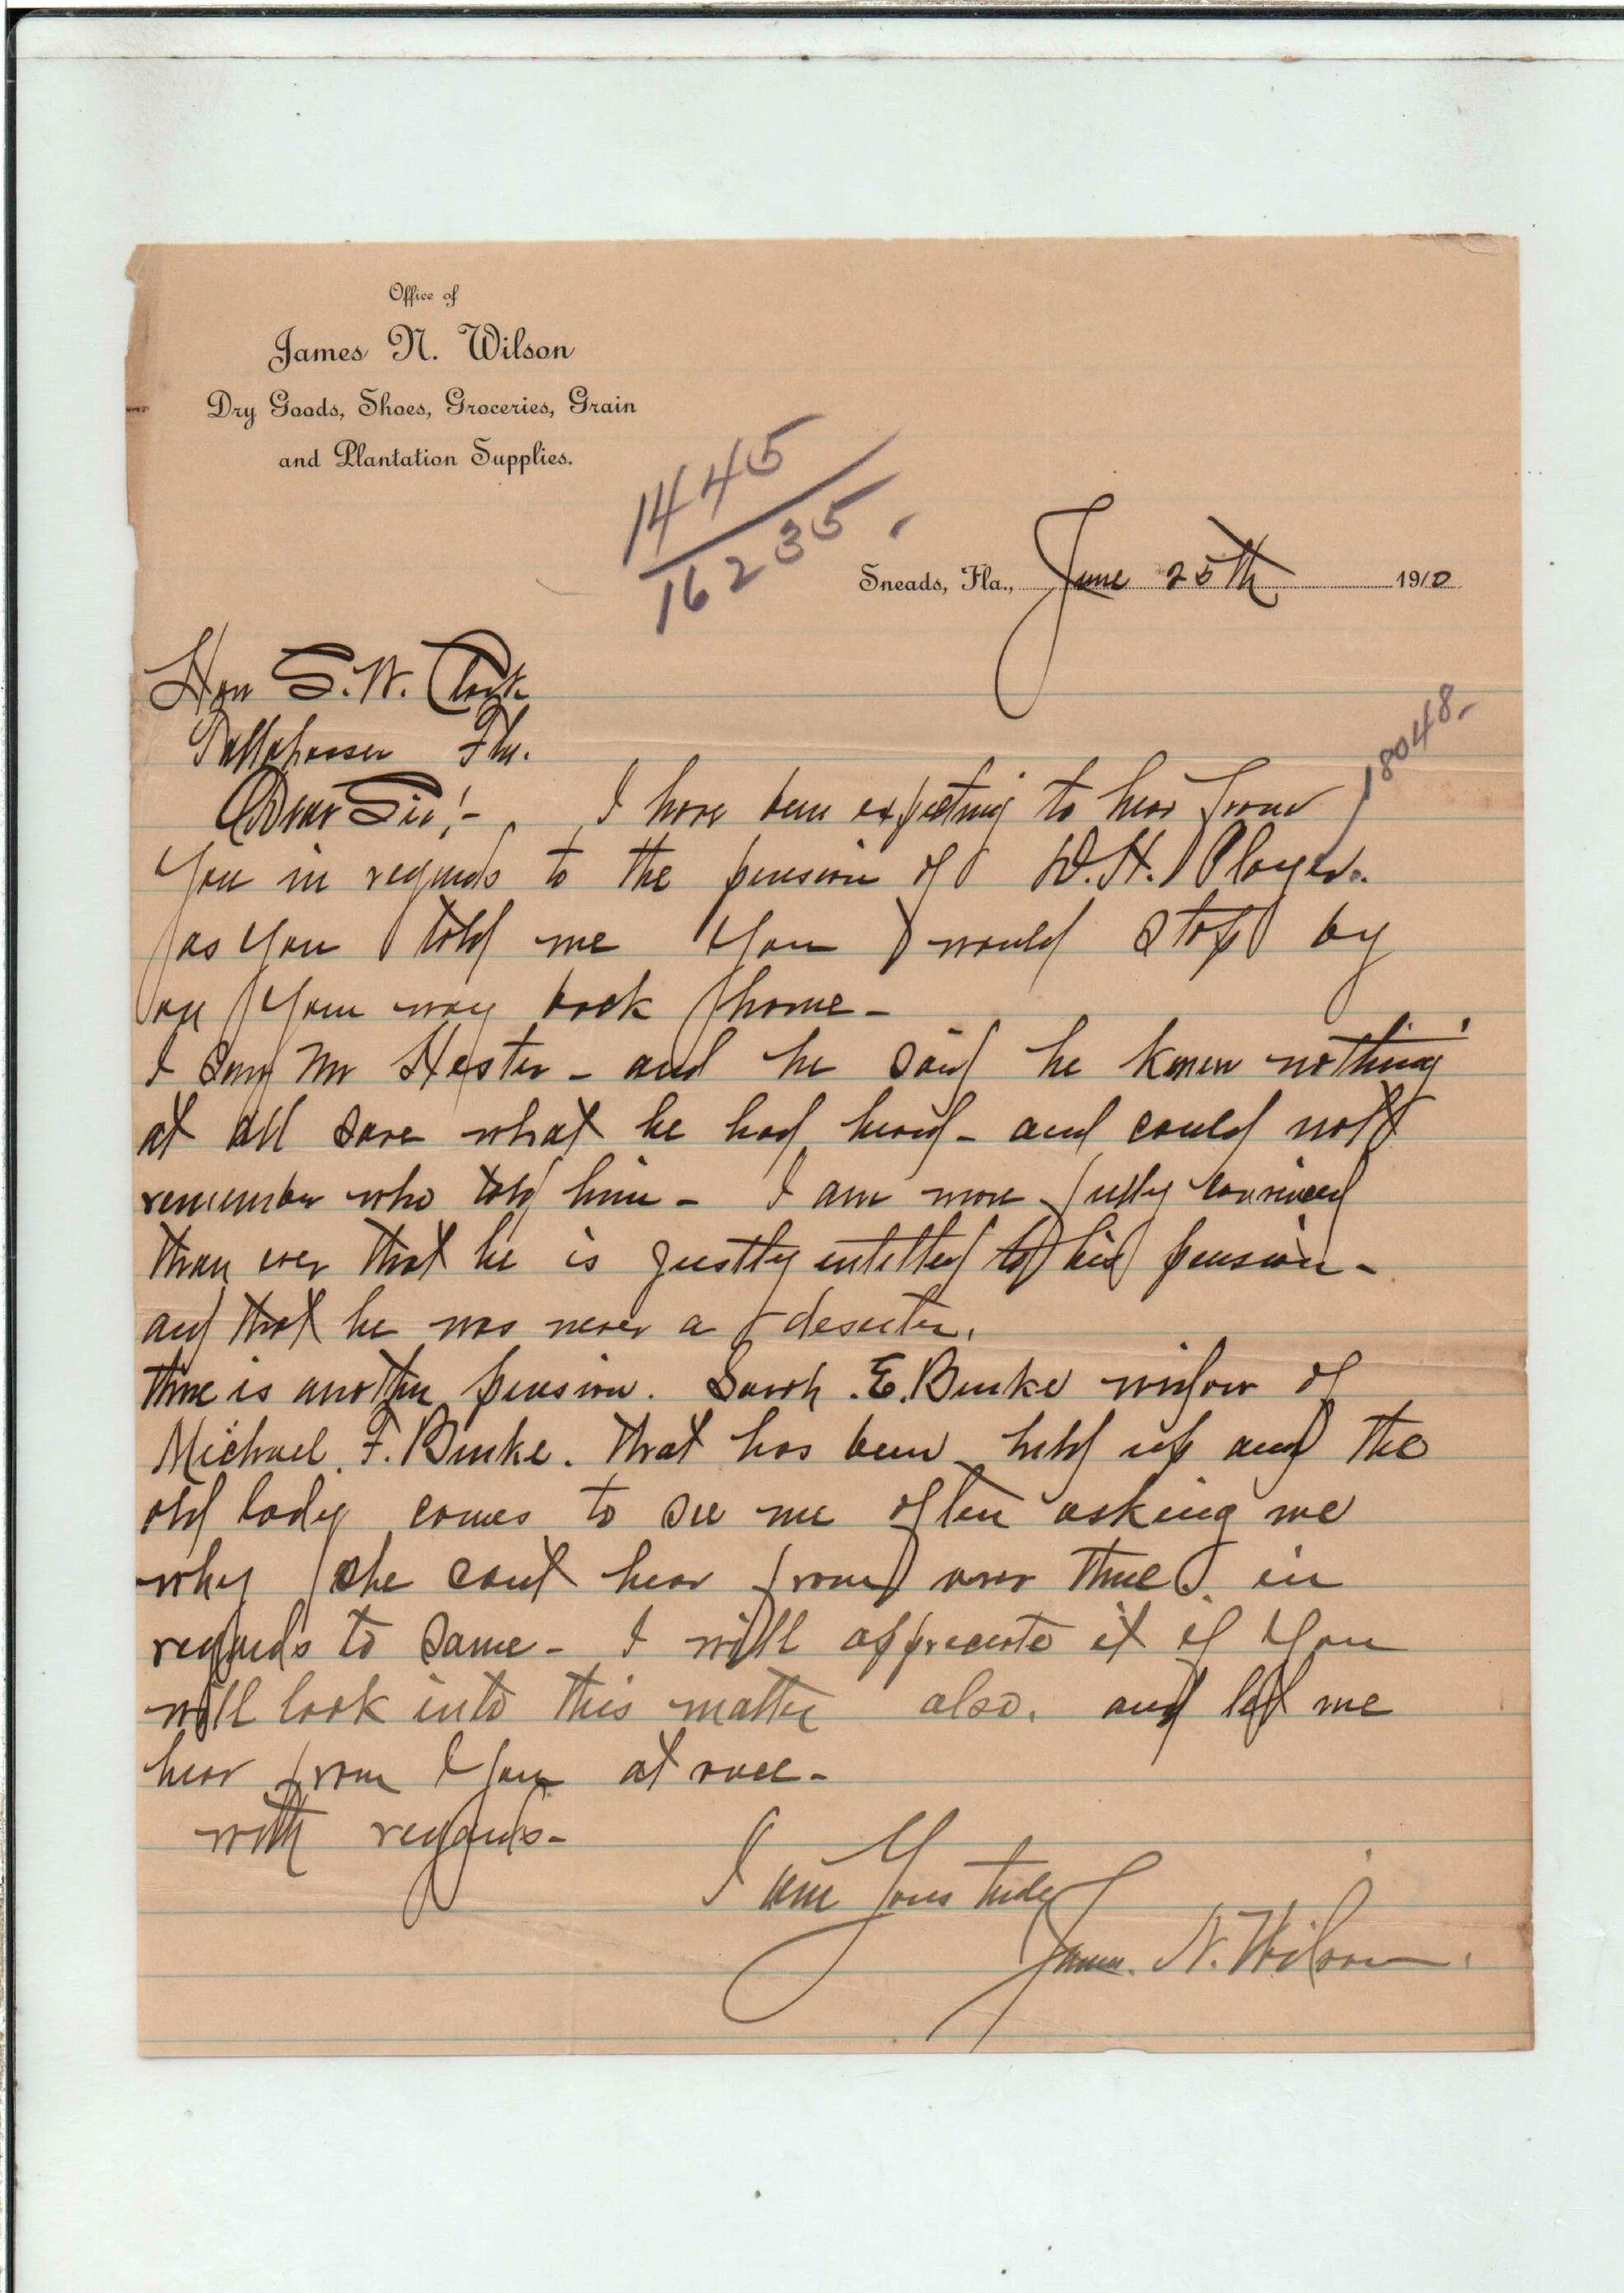 Office of
James N. Wilson
Dry Goods, Shoes, Groceries, Grain
and Plantation Supplies.
1445
16235.
Sneads, Fla., June 25th 1910
Hon S. W. Clark
Tallahassee Fla.
18048.
Dear Sir,!- I have been expecting to hear from
you in regards to the pension of W. H. Player.
as you told me you would stop by
on your way back home-
I saw Mr Hester - and he said he knew nothing
at all save what he had heard - and could not
remember who told him - I am more fully convinced
than ever that he is justly intitled to his pension -
and that he was never a deserter.
there is another pension. Sarah. E. Burke widow of
Michael. F. Burke. that has been held up and the
old lady comes to see me often asking me
why she cant hear from over there in
regards to same - I will appreciate it if you
will look into this matter also. and let me
hear from you at once -
with regards -
I am Yours truly
James. N. Wilson.